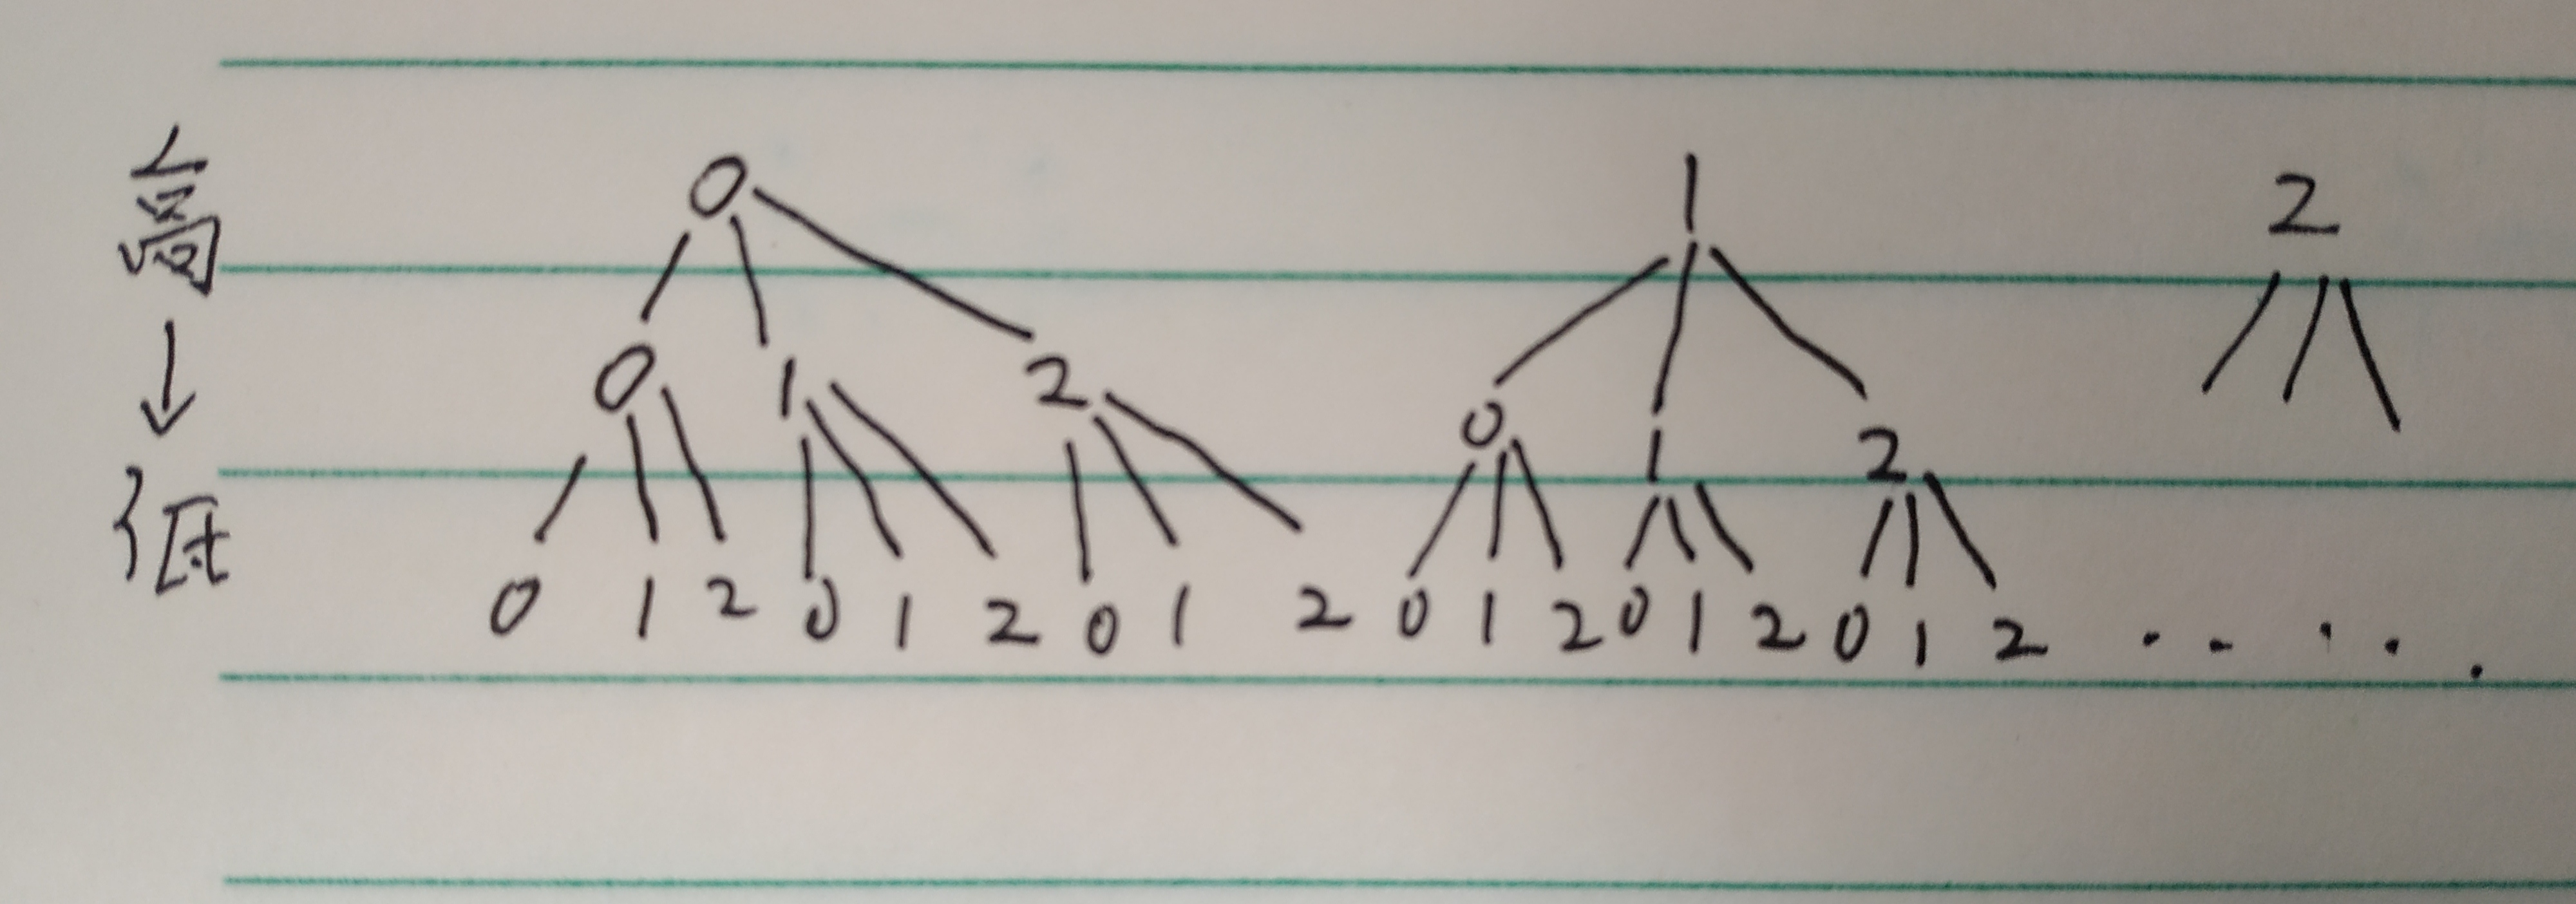 高 0 1 2
↓ 0 1 2 0 1 2
低 0 1 2 0 1 2 0 1 2 0 1 2 0 1 2 0 1 2 .....